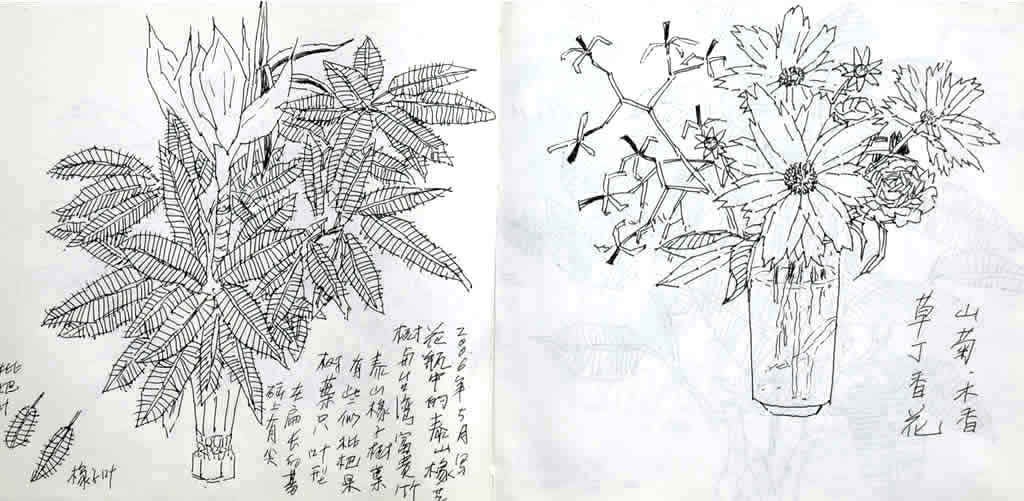 2006年5月写
花瓶中的泰山橡
树与台湾富贵竹
泰山橡子树葉
有些似枇杷果
树葉只叶形
上有尖
橡子叶
枇杷叶
山菊·木香
草丁香花